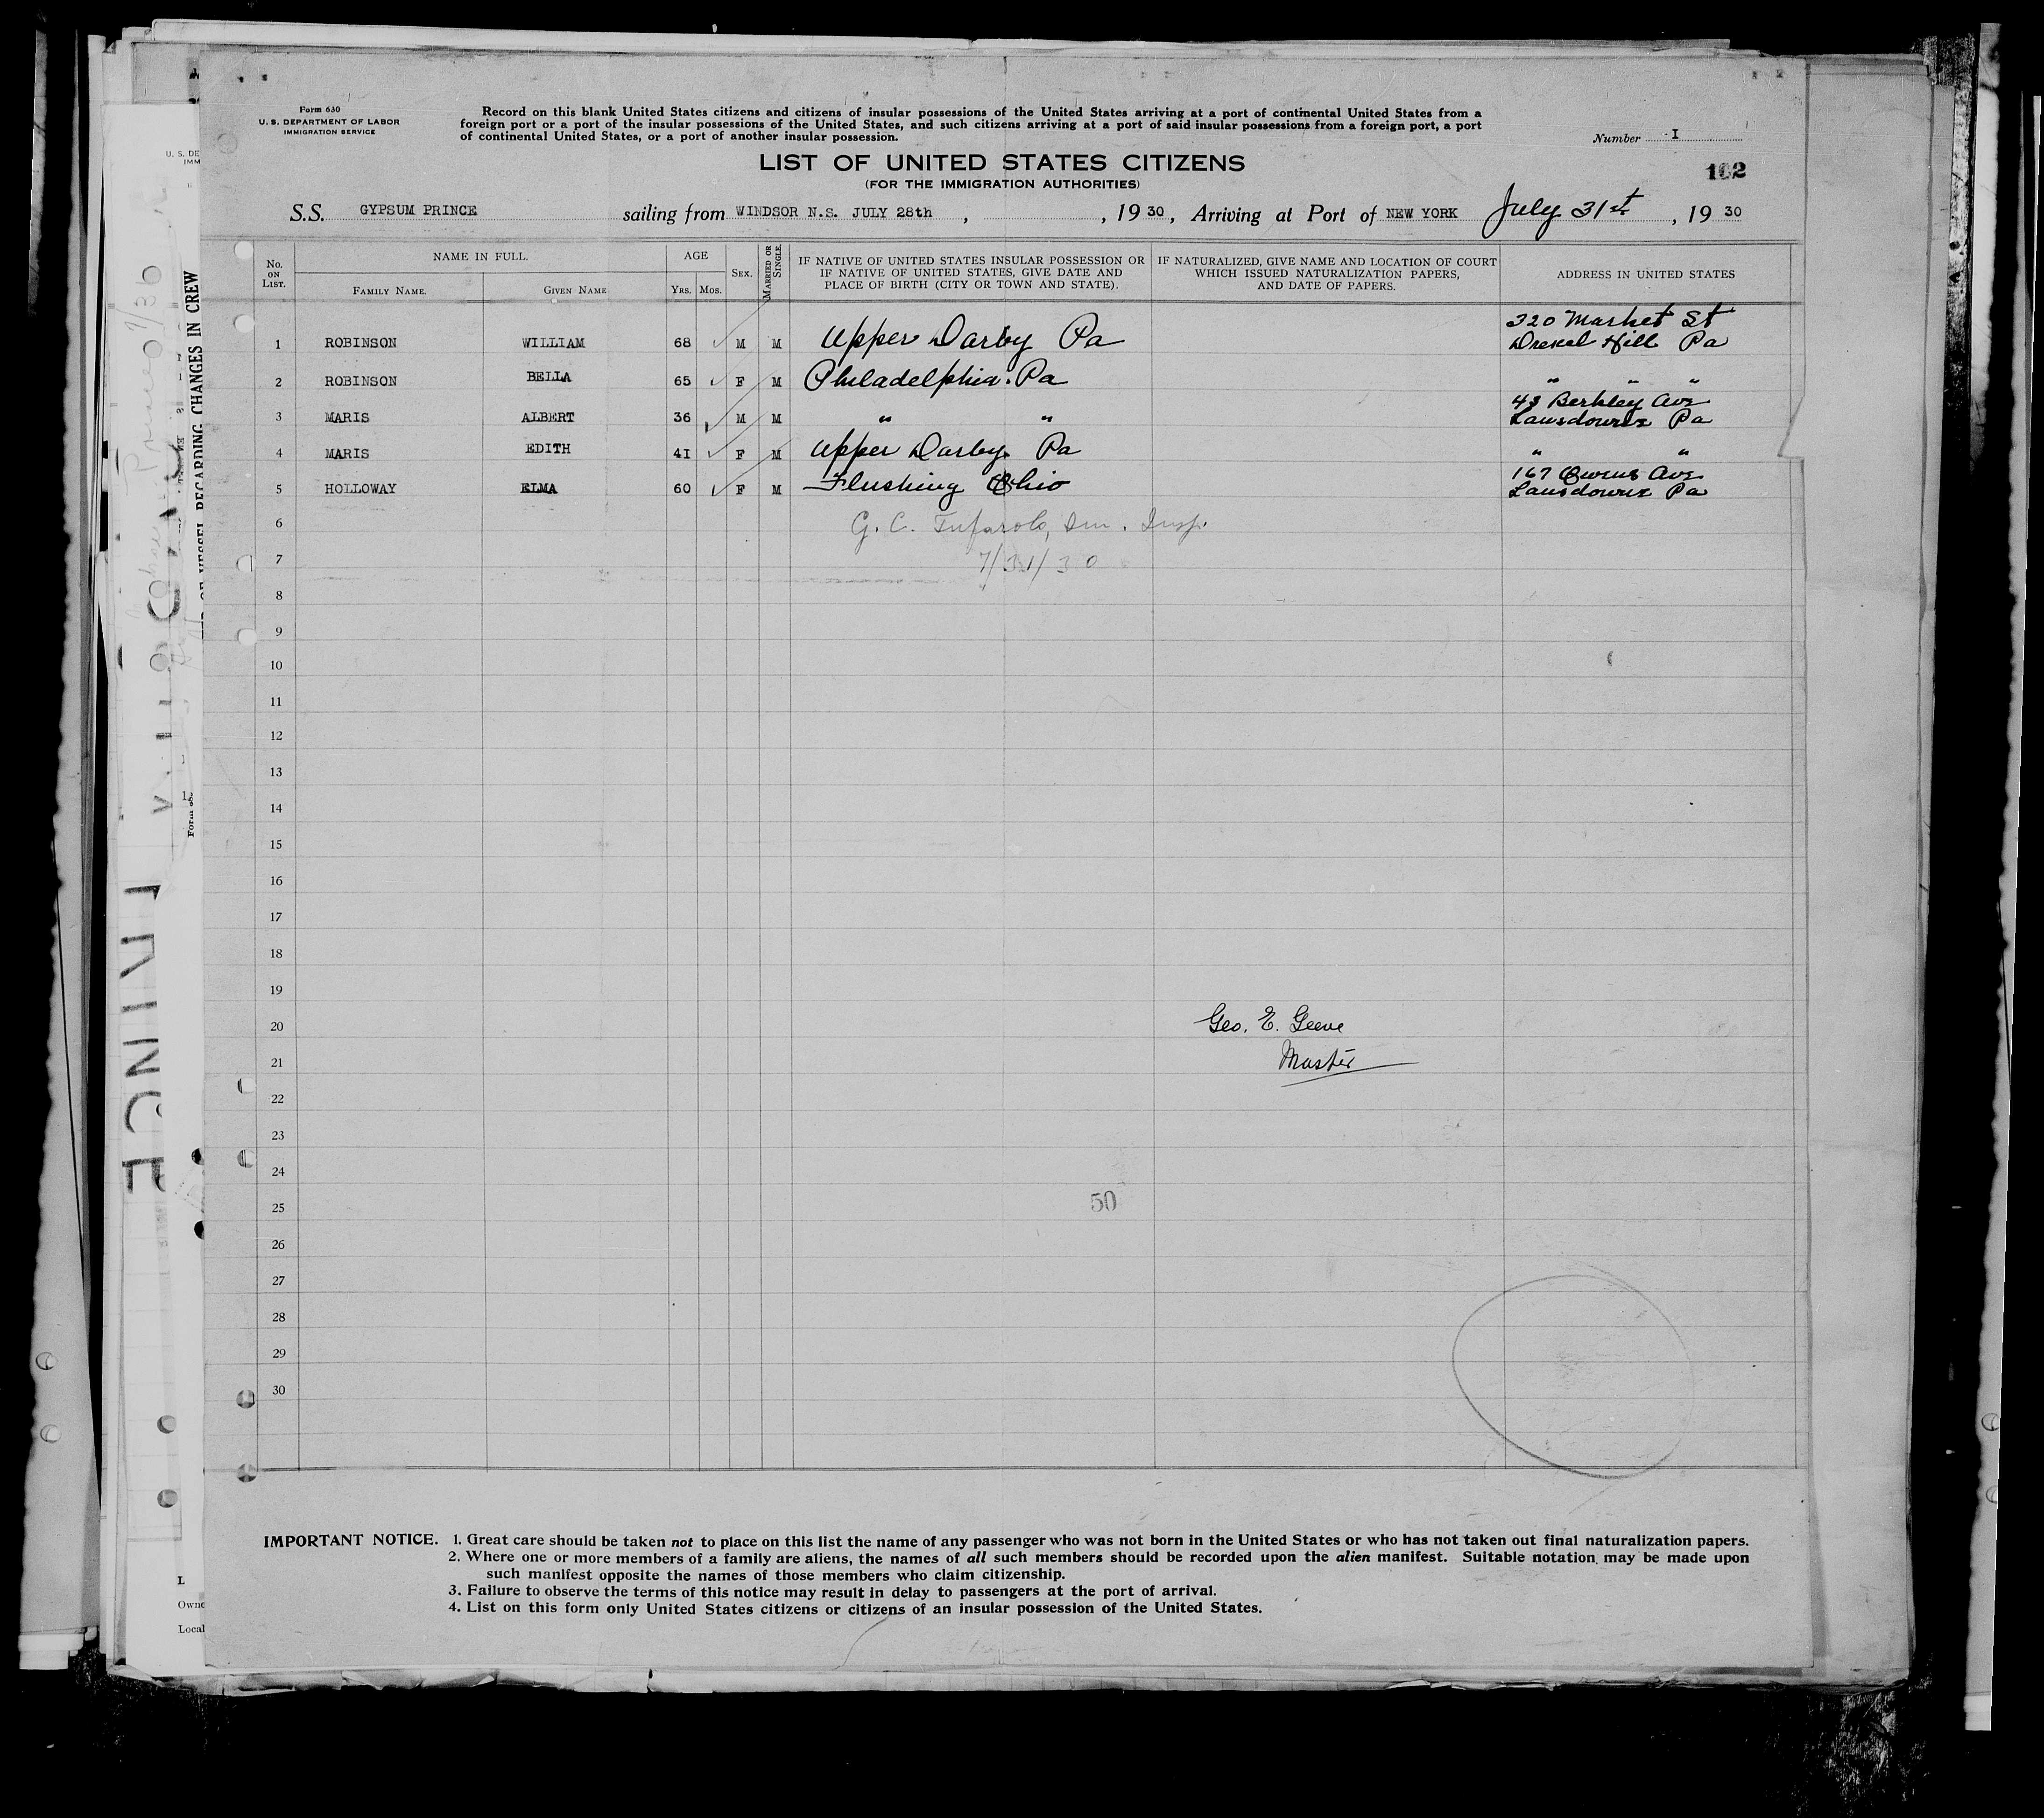 Form 630
U. S. DEPARTMENT OF LABOR
IMMIGRATION SERVICE
Record on this blank United States citizens and citizens of insular possessions of the United States arriving at a port of continental United States from a
foreign port or a port of the insular possessions of the United States, and such citizens arriving at a port of said insular possessions from a foreign port, a port
of continental United States, or a port of another insular possession.
Number I
LIST OF UNITED STATES CITIZENS
(FOR THE IMMIGRATION AUTHORITIES)
S.S. GYPSUM PRINCE sailing from WINDSOR N.S. JULY 28th , , 19 30 , Arriving at Port of NEW YORK July 31st , 19 30
No. ON LIST. NAME IN FULL. AGE SEX. MARRIED OR SINGLE. IF NATIVE OF UNITED STATES INSULAR POSSESSION OR IF NATIVE OF UNITED STATES, GIVE DATE AND PLACE OF BIRTH (CITY OR TOWN AND STATE). IF NATURALIZED, GIVE NAME AND LOCATION OF COURT WHICH ISSUED NATURALIZATION PAPERS, AND DATE OF PAPERS. ADDRESS IN UNITED STATES
FAMILY NAME. GIVEN NAME YRS. MOS.
320 Market St
1 ROBINSON WILLIAM 68 M M Upper Darby Pa Drexel Hill Pa
2 ROBINSON BELLA 65 F M Philadelphia. Pa " " "
43 Berkley Ave
3 MARIS ALBERT 36 M M " " Lansdowne Pa
4 MARIS EDITH 41 F M Upper Darby. Pa " "
167 Owens Ave
5 HOLLOWAY ELMA 60 F M Flushing Ohio Lansdowne Pa
6 G. C. Imm. Insp.
7 7/31/30
8
9
10
11
12
13
14
15
16
17
18
19
20 Geo. E. Geeve
21 Master
22
23
24
25 50
26
27
28
29
30
IMPORTANT NOTICE. 1. Great care should be taken not to place on this list the name of any passenger who was not born in the United States or who has not taken out final naturalization papers.
2. Where one or more members of a family are aliens, the names of all such members should be recorded upon the alien manifest. Suitable notation may be made upon
such manifest opposite the names of those members who claim citizenship.
3. Failure to observe the terms of this notice may result in delay to passengers at the port of arrival.
4. List on this form only United States citizens or citizens of an insular possession of the United States.
REGARDING CHANGES IN CREW